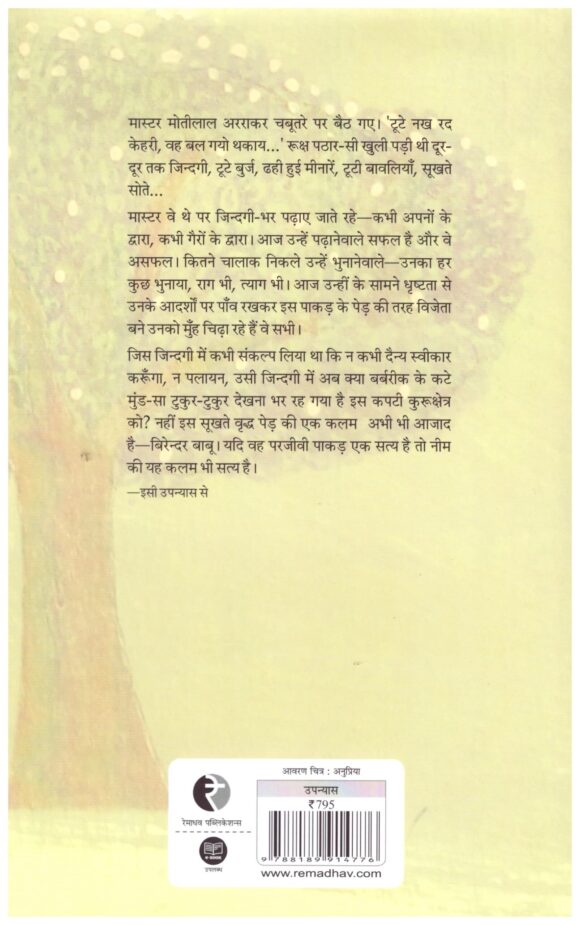 मास्टर मोतीलाल अरराकर चबूतरे पर बैठ गए। 'टूटे नख रद
केहरी, वह बल गयो थकाय...' रूक्ष पठार-सी खुली पड़ी थी दूर-
दूर तक जिन्दगी, टूटे बुर्ज, ढही हुई मीनारें, टूटी बावलियाँ, सूखते
सोते...
मास्टर वे थे पर जिन्दगी-भर पढ़ाए जाते रहे—कभी अपनों के
द्वारा, कभी गैरों के द्वारा। आज उन्हें पढ़ानेवाले सफल है और वे
असफल। कितने चालाक निकले उन्हें भुनानेवाले—उनका हर
कुछ भुनाया, राग भी, त्याग भी। आज उन्हीं के सामने धृष्टता से
उनके आदर्शों पर पाँव रखकर इस पाकड़ के पेड़ की तरह विजेता
बने उनको मुँह चिढ़ा रहे हैं वे सभी।
जिस जिन्दगी में कभी संकल्प लिया था कि न कभी दैन्य स्वीकार
करूँगा, न पलायन, उसी जिन्दगी में अब क्या बर्बरीक के कटे
मुंड-सा टुकुर-टुकुर देखना भर रह गया है इस कपटी कुरूक्षेत्र
को? नहीं इस सूखते वृद्ध पेड़ की एक कलम अभी भी आजाद
है—बिरेन्दर बाबू। यदि वह परजीवी पाकड़ एक सत्य है तो नीम
की यह कलम भी सत्य है।
—इसी उपन्यास से
आवरण चित्र : अनुप्रिया
उपन्यास
₹ 795
रेमाधव पब्लिकेशन्स
e-book
उपलब्ध
9 788189 914776
www.remadhav.com